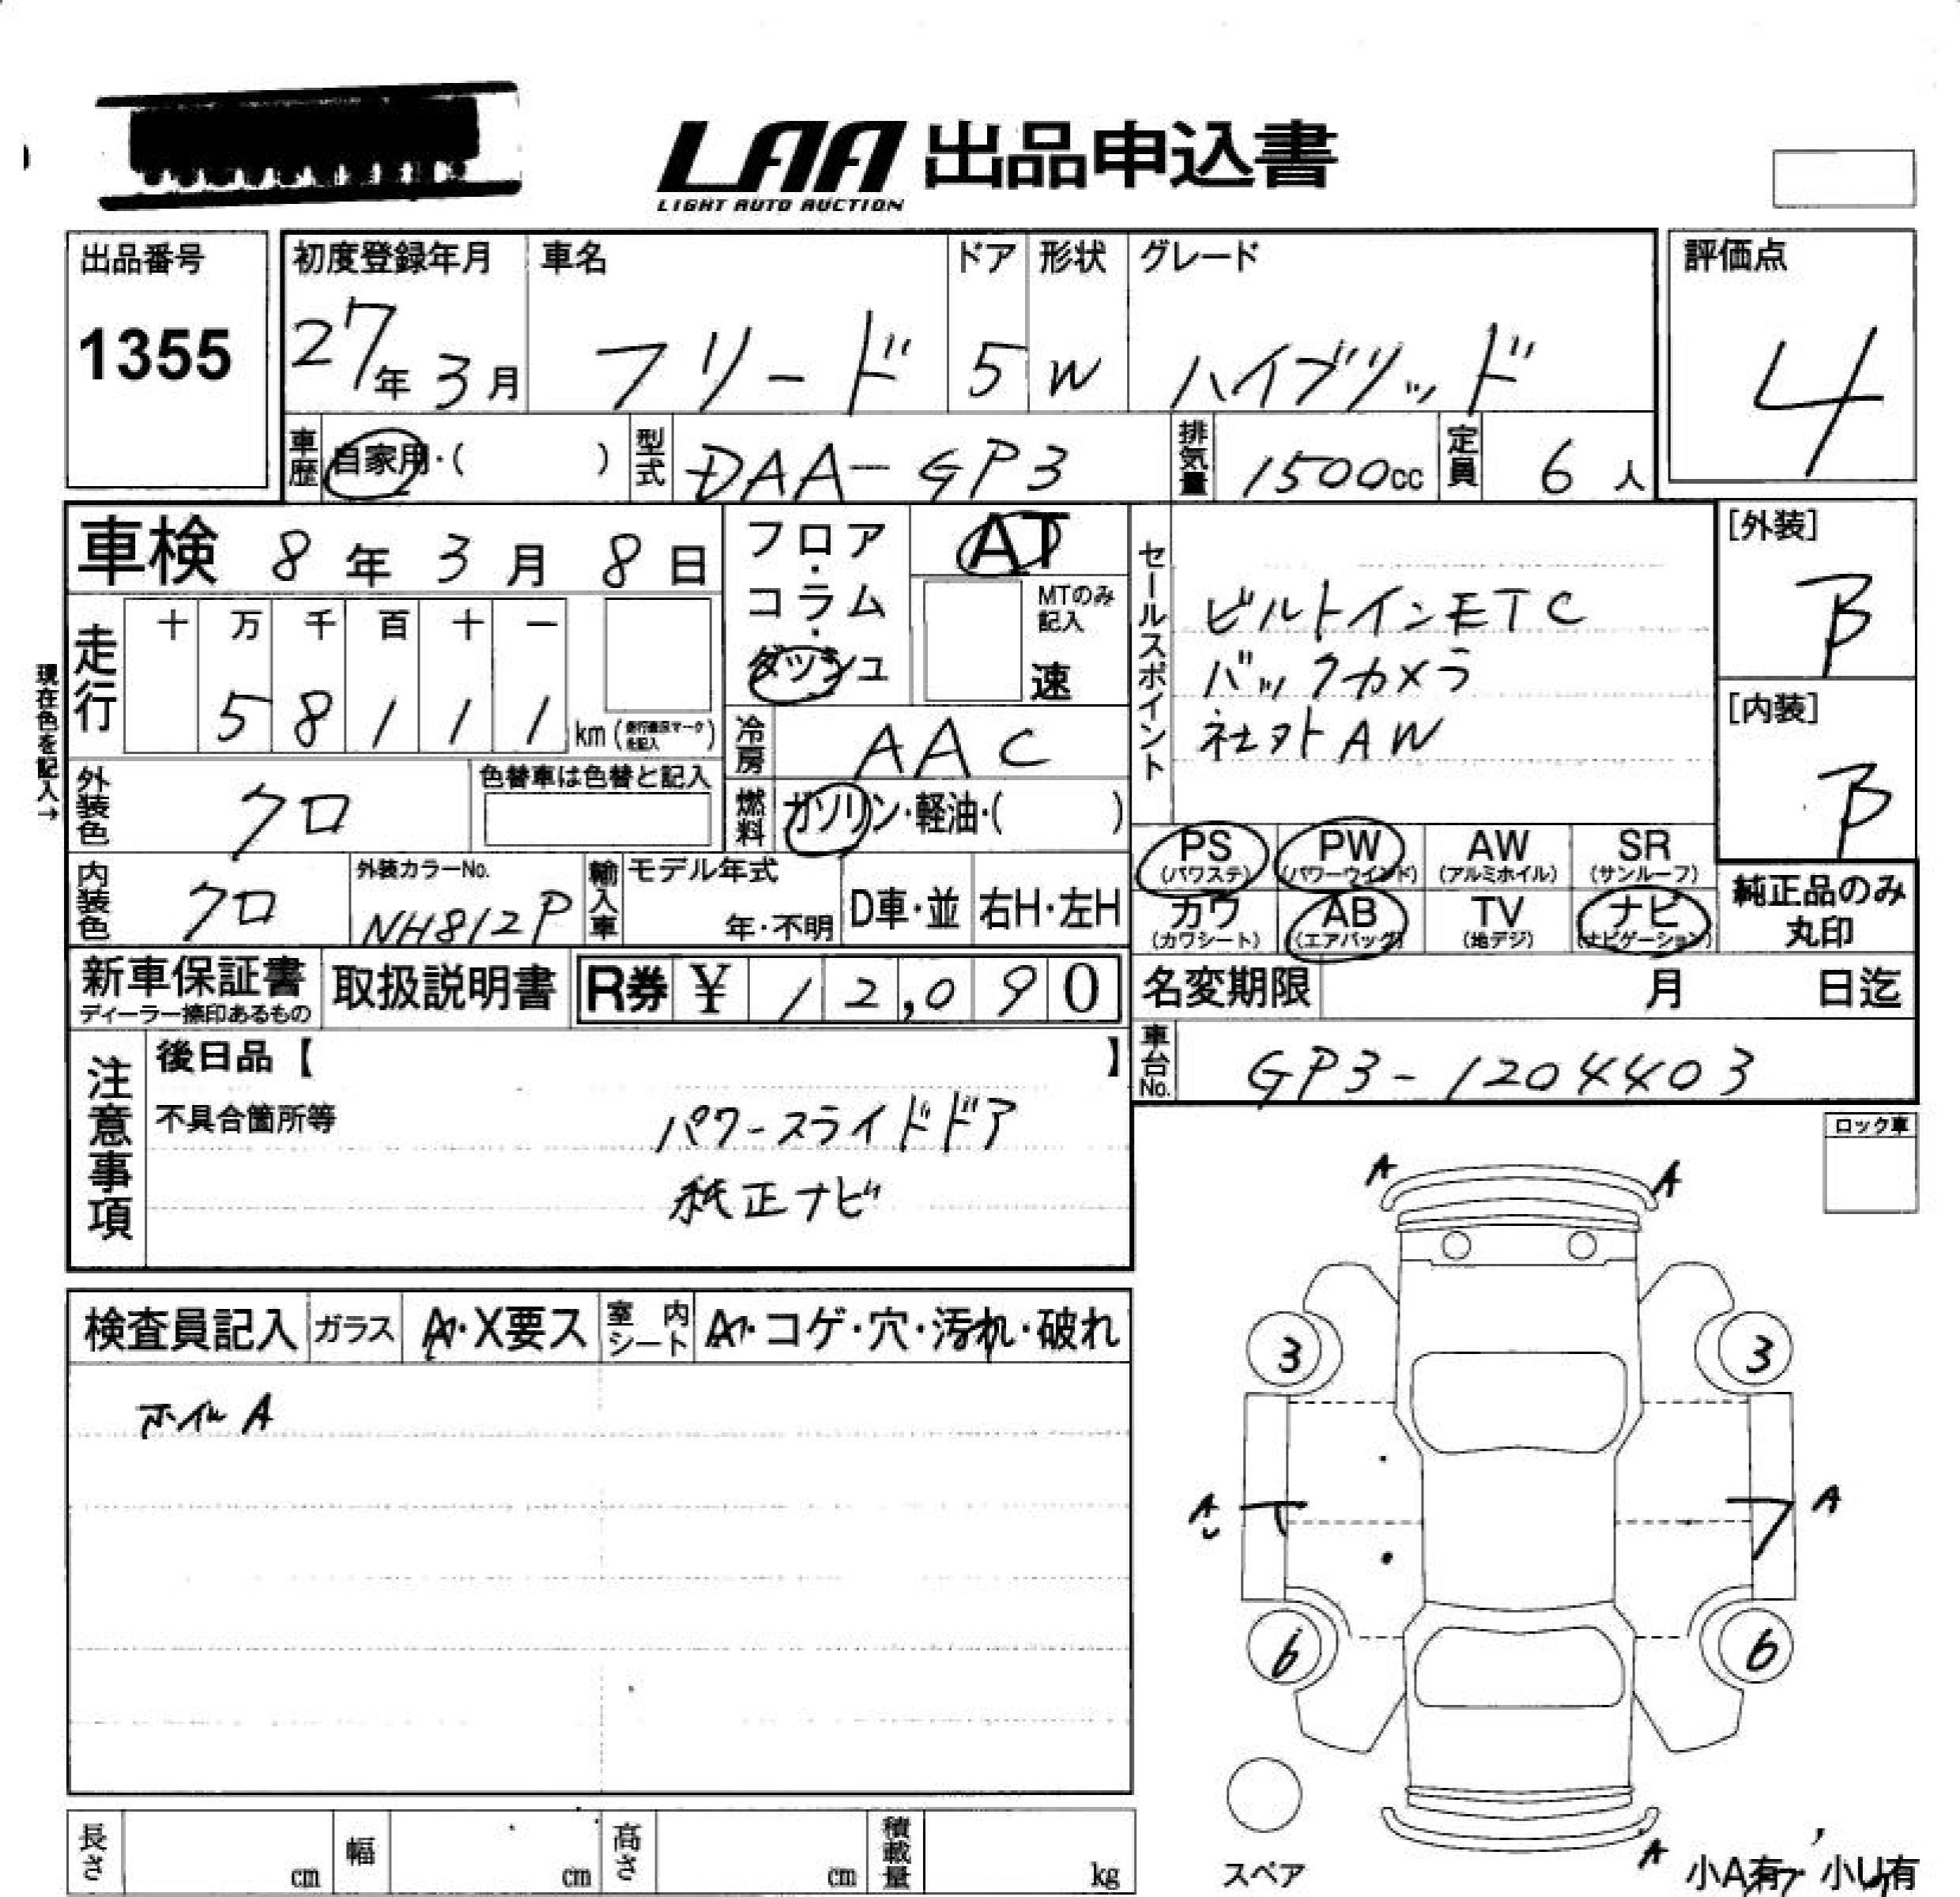 LAA 出品申込書
LIGHT AUTO AUCTION
出品番号
1355
初度登録年月
27年 3月
車名
フリード
ドア
5
形状
W
グレード
ハイブリッド
評価点
4
車歴
自家用・( )
型式
DAA-GP3
排気量
1500cc
定員
6 人
車検 8年 3月 8日
フロア・コラム・ダッシュ
AT
MTのみ記入
速
セールスポイント
ビルトインETC
バックカメラ
社外AW
[外装]
B
[内装]
B
現在色を記入→
走行
十 万 千 百 十 一
5 8 1 1 1 km
冷房
AAC
外装色
クロ
色替車は色替と記入
燃料
ガソリン・軽油・( )
PS
(パワステ)
PW
(パワーウインド)
AW
(アルミホイル)
SR
(サンルーフ)
カワ
(カワシート)
AB
(エアバッグ)
TV
(地デジ)
ナビ
(ナビゲーション)
純正品のみ
丸印
内装色
クロ
外装カラーNo.
NH812P
輸入車
モデル年式
年・不明
D車・並
右H・左H
新車保証書
ディーラー捺印あるもの
取扱説明書
R券 ¥ 12,090
名変期限 月 日迄
車台No.
GP3-1204403
注意事項
後日品【 】
不具合箇所等
パワースライドドア
純正ナビ
ロック車
検査員記入
ガラス
A・X要ス
室内シート
A・コゲ・穴・汚れ・破れ
ホイルA
A
A
3
3
A
A
6
6
スペア
A
小A有 小U有
長さ cm
幅 cm
高さ cm
積載量 kg